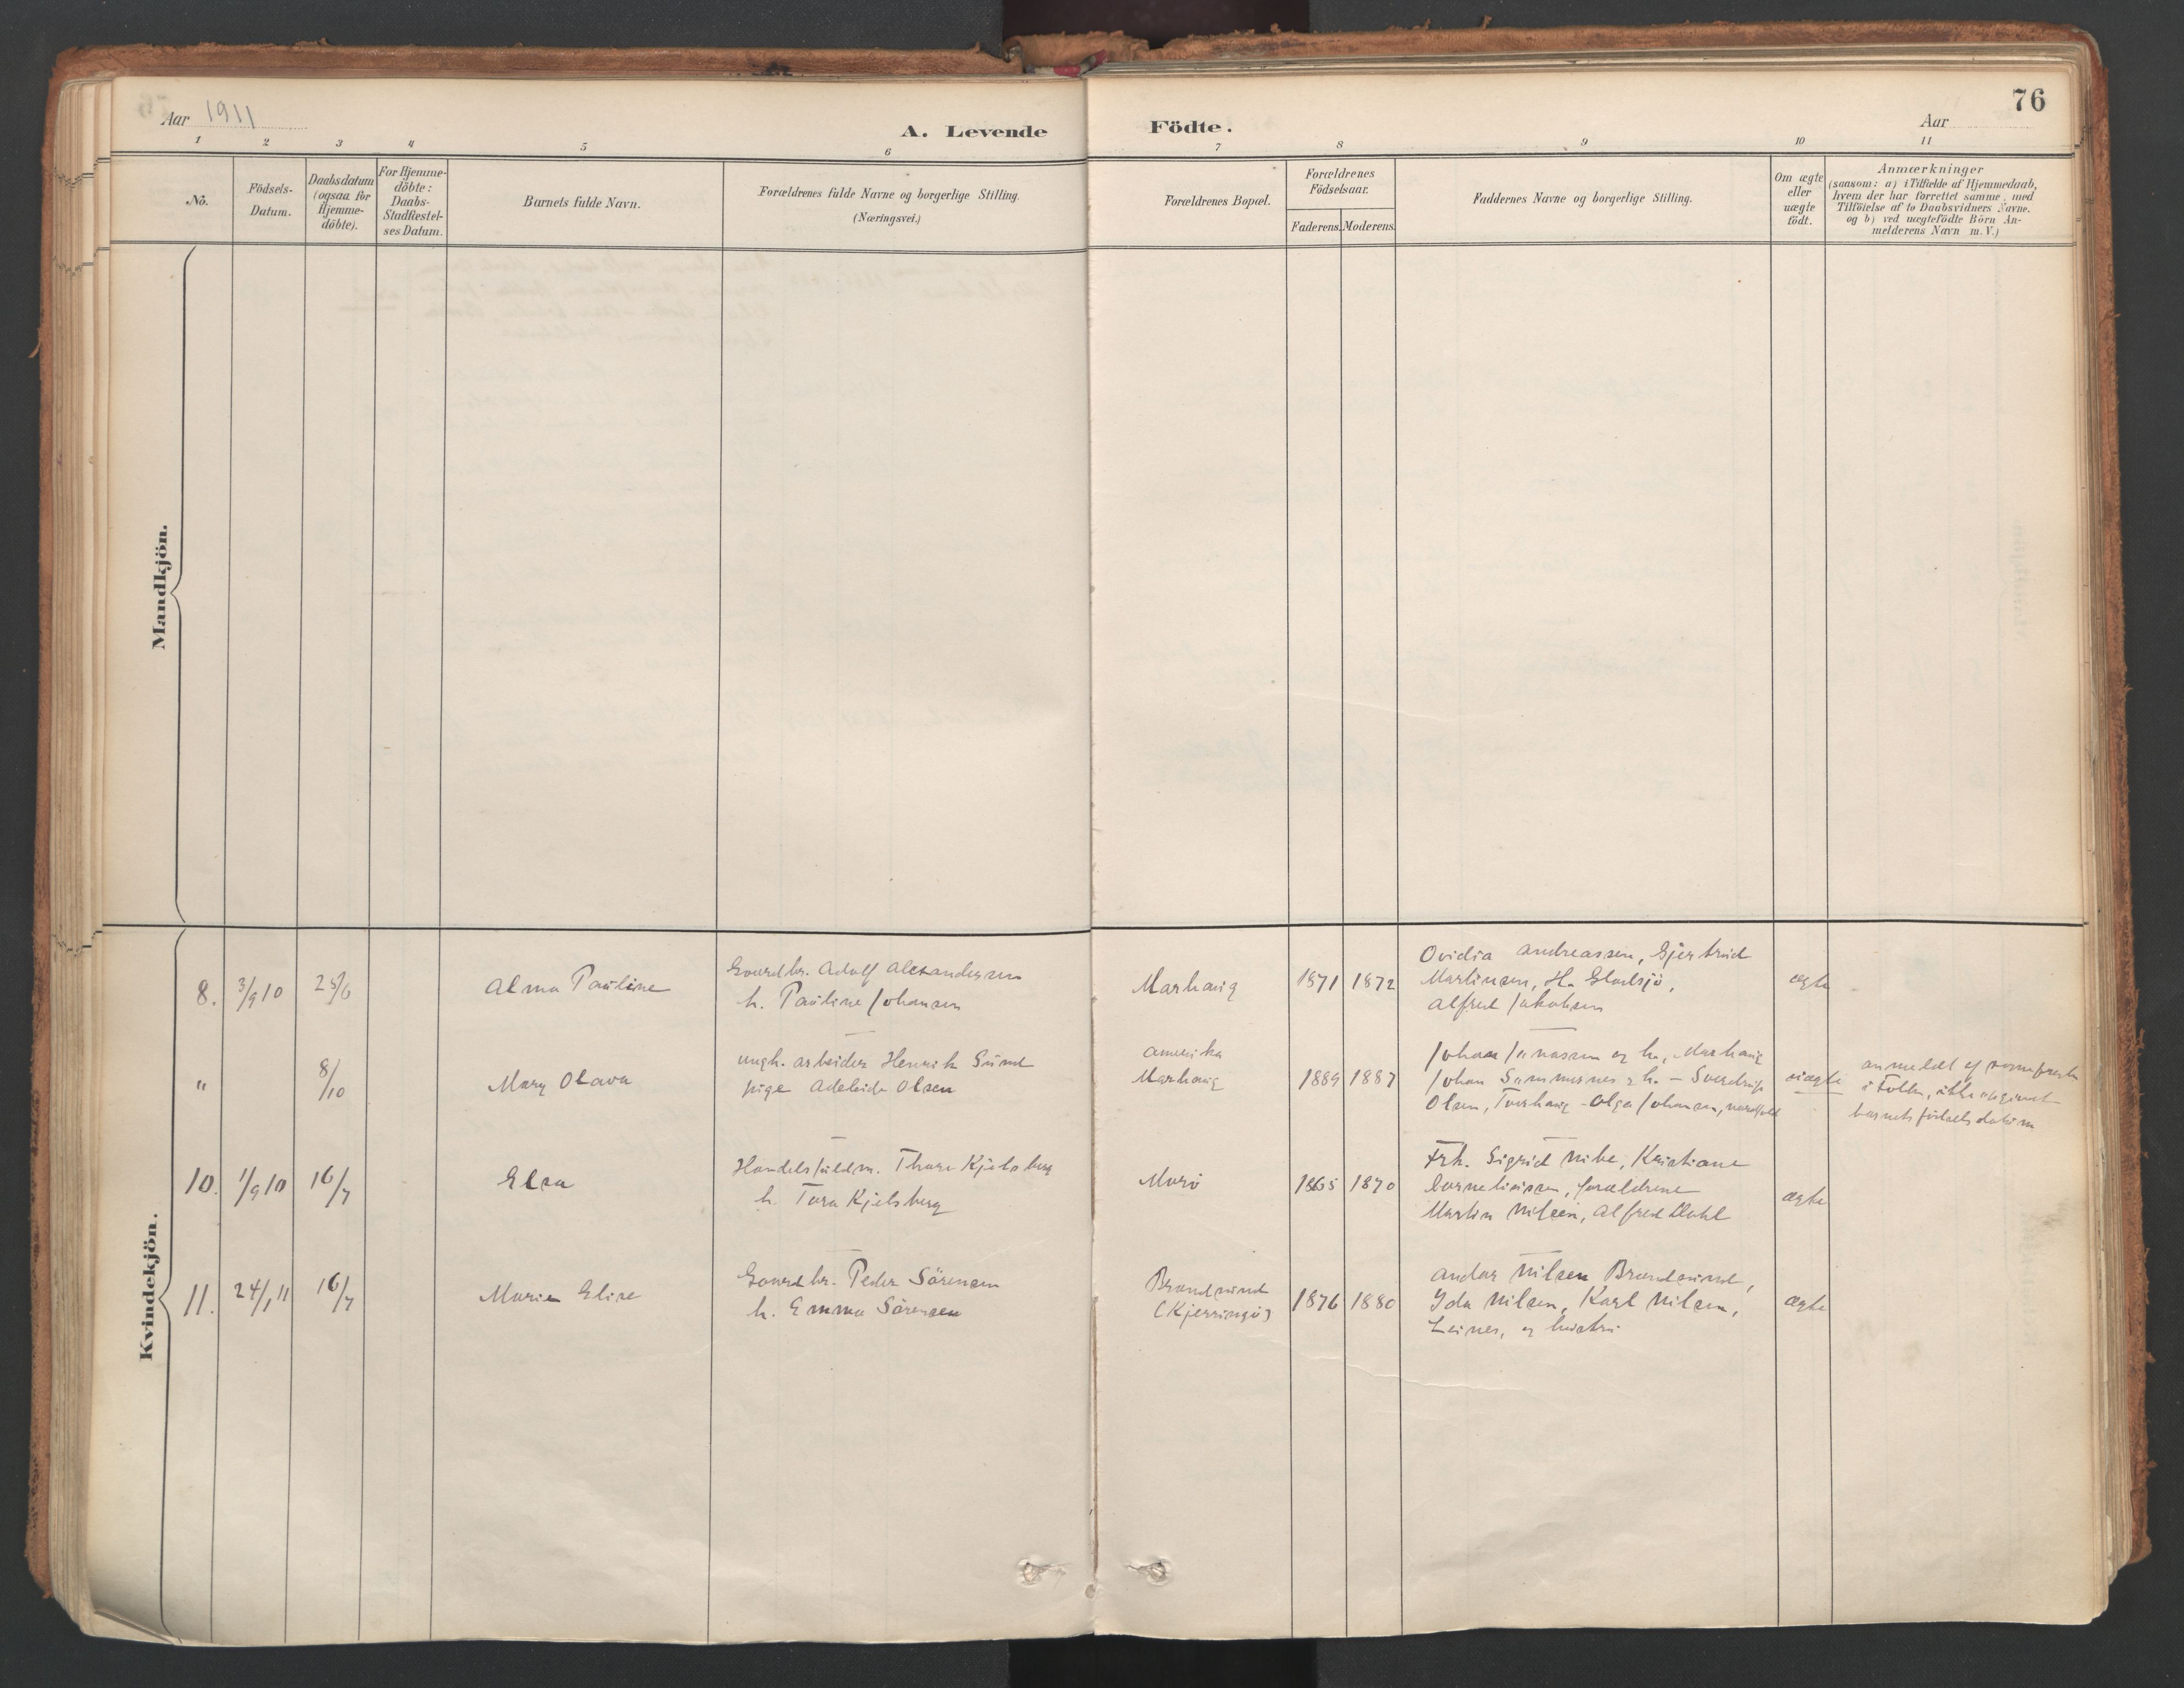 76
Aar 1911
A. Levende Födte.
Aar
1 2 3 4 5 6 7 8 9 10 11
No.
Födsels-Datum.
Daabsdatum (ogsaa for Hjemme-döbte).
For Hjemme-döbte: Daabs-Stadfæstel-ses Datum.
Barnets fulde Navn.
Forældrenes fulde Navne og borgerlige Stilling.
(Næringsvei.)
Forældrenes Bopæl.
Forældrenes Födselsaar.
Faderens. Moderens.
Faddernes Navne og borgerlige Stilling.
Om ægte eller uægte födt.
Anmærkninger
(saasom: a) i Tilfælde af Hjemmedaab,
hvem der har forrettet samme, med
Tilföielse af to Daabsvidners Navne.
og b) ved uægtefödte Börn An-
melderens Navn m. V.)
Mandkjön.
Kvindekjön.
8. 3/9 10 25/6 Alma Pauline
Gaardbr. Adolf Alexandersen
h. Pauline Johansen
Marhaug 1871 1872
Ovidia Andreassen, Gjertrud
Martinsen, H.
Alfred Jakobsen
ægte
" 8/10 Mary Olava
ungk. arbeider Henrik Sund
pige Adelaide Olsen
Amerika
Marhaug 1889 1887
Johan Jonassen og h., Marhaug
Johan h. - Sverdrup
Olsen, - Olga Johansen, Nordfold
uægte
anmeldt af
i Folden, ikke opgivet
barnets födselsdatum
10. 1/9 10 16/7 Elsa
Handelsfuldm. Thore Kjelsberg
h. Tora Kjelsberg
Morö 1865 1870
Frk. Sigrid Kristiane
Corneliussen, forældrene
Martin Nilsen, Alfred Dahl
ægte
11. 24/1 11 16/7 Marie Elise
Gaardbr. Peder Sörensen
h. Emma Sörensen
Brandsund
(Kjerringö) 1876 1880
Andor Nilsen Brandsund,
Ida Nilsen, Karl Nilsen,
Leines, og hustru
ægte